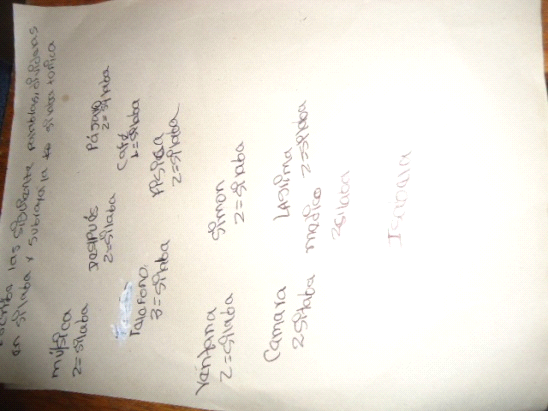 Escriba las siguiente palablas, sividelas
en silaba y subraya la silaba tonica
música
2=silaba
después
2=silaba
Pájaro
2=silaba
Telafono
3=silaba
Café
1=silaba
2=silaba
Ventana
2=silaba
simon
2=silaba
Camara
2silaba
Lasima
2=silaba
medico
3silaba